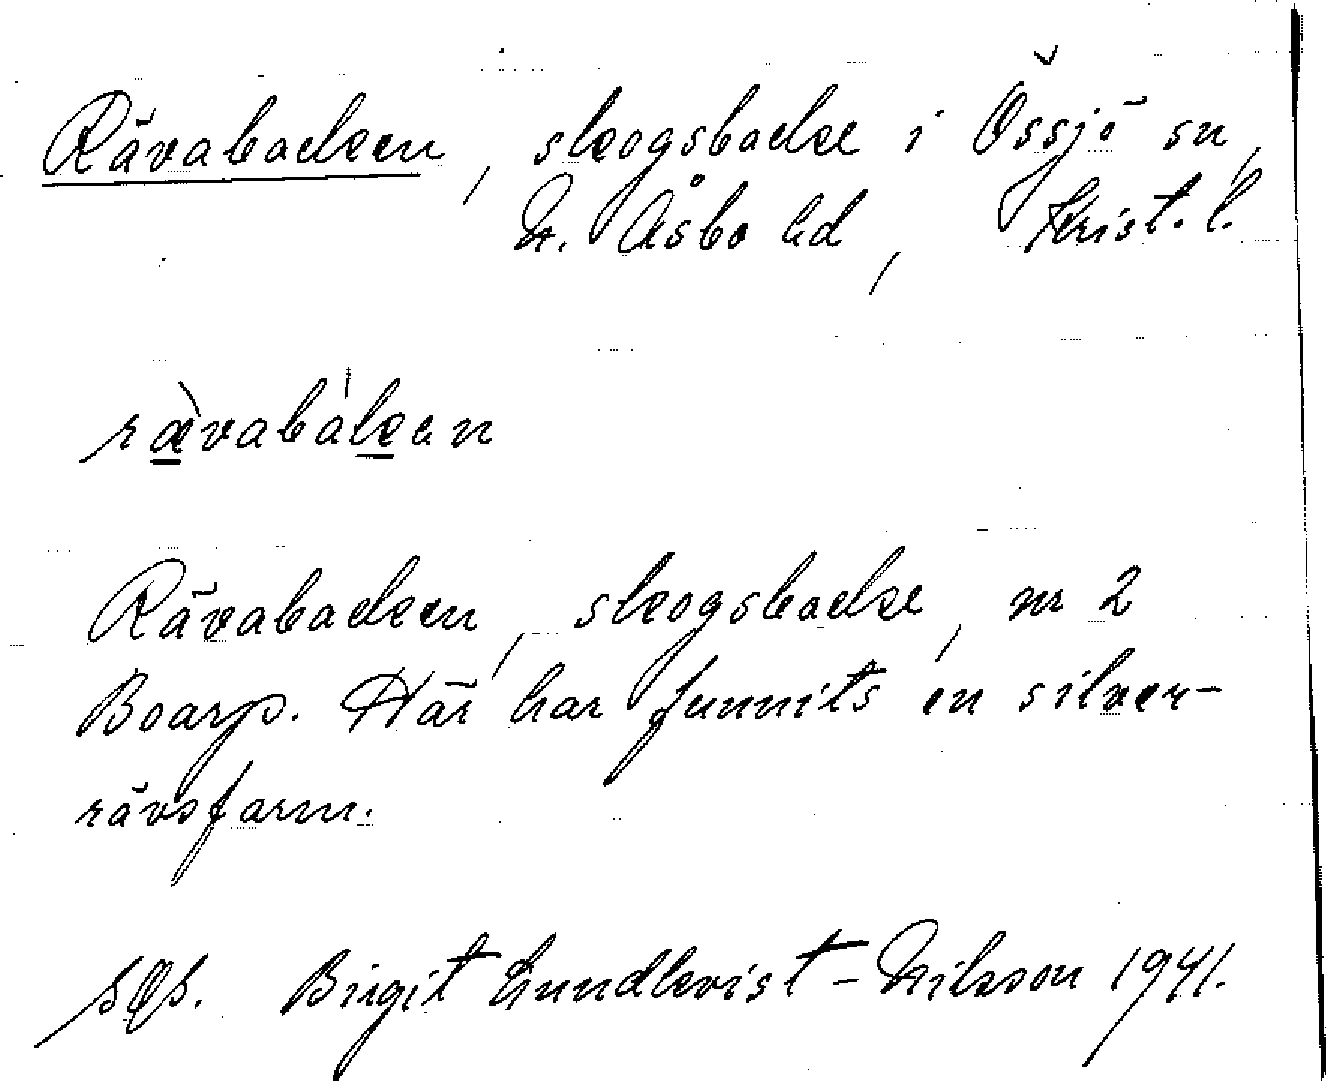 Rävabacken, skogsbacke i Össjö sn,
N. Åsbo hd, Krist. l.
rævabaken
Rävabacken, skogsbacke, nr 2
Boarp. Här har funnits en silver-
rävsfarm.
Birgit Lundkvist-Nilsson 1941.